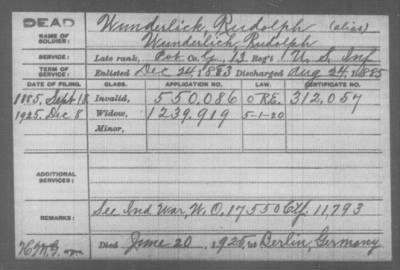 DEAD
NAME OF SOLDIER:
Wunderlick, Rudolph (alias)
Wunderlich, Rudolph
SERVICE:
Late rank, Pvt. Co. G, 13 Reg't U. S. Inf
TERM OF SERVICE:
Enlisted Dec 24, 1883 Discharged Aug 24, 1885
DATE OF FILING. CLASS. APPLICATION NO. LAW. CERTIFICATE NO.
1885, Sept 18 Invalid, 550,086 ORE. 312,057
1925, Dec 8 Widow, 1239,919 5-1-20
Minor,
ADDITIONAL SERVICES:
REMARKS:
See Ind. War, W. O. 17550 Ctf. 11,793
Died June 20, 1925, at Berlin, Germany